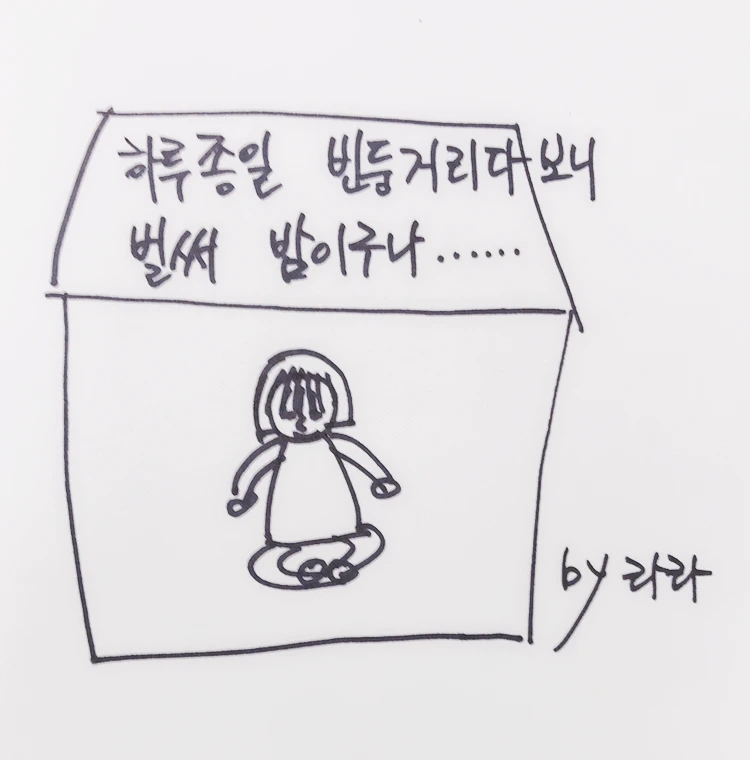 하루종일 빈둥거리다보니
벌써 밤이구나......
by 라라